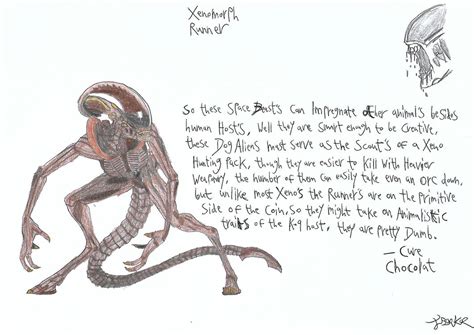 Xenomorph
Runner
So these Space Beasts can Impregnate other animals besides
human Hosts, Well they are smart enogh to be Creative,
these Dog Aliens must serve as the Scout's of a Xeno
Hunting Pack, though they are easier to Kill With Havier
Weaponry, the number of them can easily take even an orc down,
but unlike most Xeno's the Runner's are on the primitive
Side of the Coin, So they might take on Animalistic
traits of the K-9 host, they are pretty Dumb.
- Cure
Chocolat